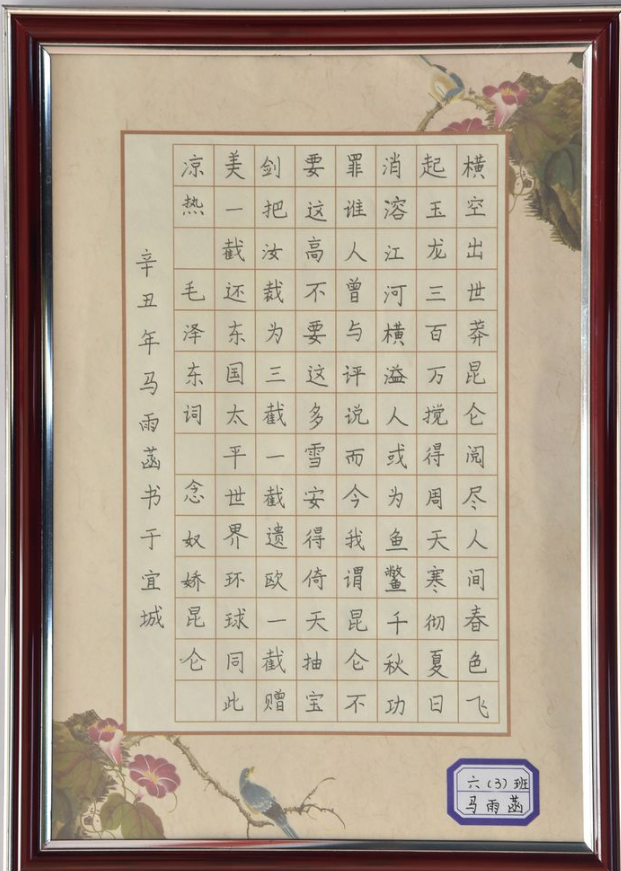 横空出世莽昆仑阅尽人间春色飞
起玉龙三百万搅得周天寒彻夏日
消溶江河横溢人或为鱼鳖千秋功
罪谁人曾与评说而今我谓昆仑不
要这高不要这多雪安得倚天抽宝
剑把汝裁为三截一截遗欧一截赠
美一截还东国太平世界环球同此
凉热 毛泽东词 念奴娇昆仑
辛丑年马雨菡书于宜城
六(3)班
马雨菡